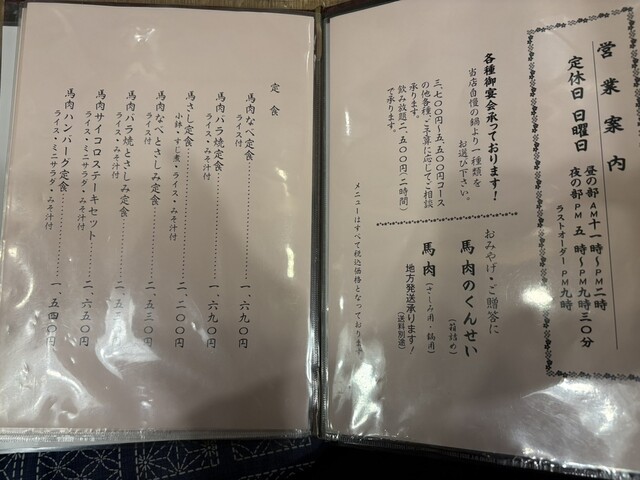 営業案内
定休日 日曜日
昼の部 AM十一時〜PM二時
夜の部 PM五時〜PM九時三〇分
ラストオーダーPM九時
各種御宴会承っております!
当店自慢の鍋より一種類を
お選び下さい。
三、七〇〇円〜五、五〇〇円コース
の他各種、ご予算に応じてご相談
承ります。
飲み放題二、五〇〇円(二時間)
で承ります。
おみやげ・ご贈答に
馬肉のくんせい
(箱詰め)
馬肉(さしみ用・鍋用)
地方発送承ります!
(送料別途)
メニューはすべて税込価格となっております
定食
馬肉なべ定食…………一、六九〇円
ライス付
馬肉バラ焼定食…………一、六九〇円
ライス・みそ汁付
馬さし定食…………二、二〇〇円
小鉢・すじ煮・ライス・みそ汁付
馬肉なべとさしみ定食…………二、五三〇円
ライス付
馬肉バラ焼とさしみ定食…………二、五
ライス・みそ汁付
馬肉サイコロステーキセット…………二、六五〇円
ライス・ミニサラダ・みそ汁付
馬肉ハンバーグ定食…………一、五四〇円
ライス・ミニサラダ・みそ汁付